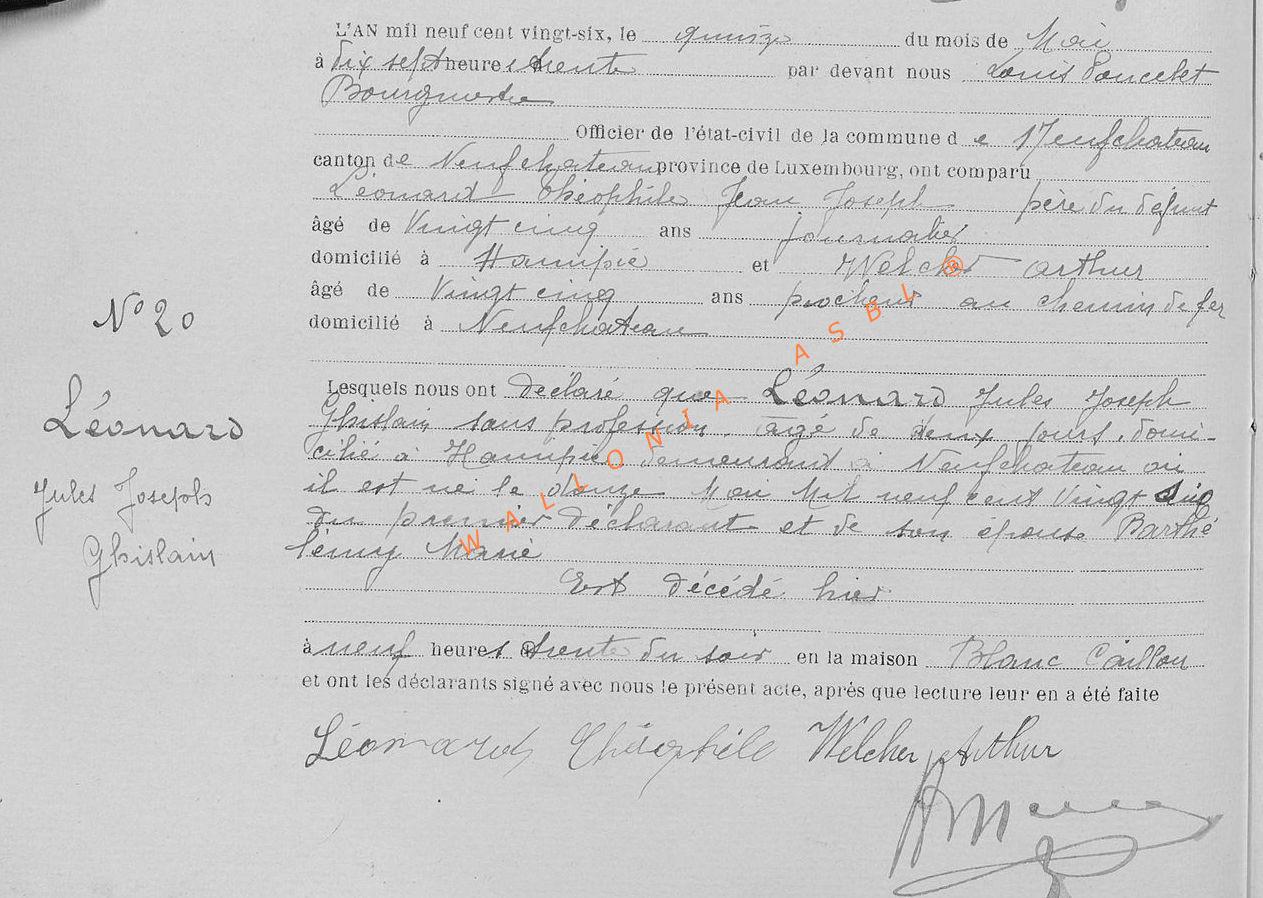 L'AN mil neuf cent vingt-six, le quinze du mois de Mai
à Dix sept heures trente par devant nous Louis Poncelet
Bourgmestre
Officier de l'état-civil de la commune de Neufchateau
canton de Neufchateau province de Luxembourg, ont comparu
Léonard Théophile Jean Joseph père du défunt
âgé de Vingt cinq ans Journalier
domicilié à Hamipré et Welcher Arthur
âgé de Vingt cinq ans au chemin de fer
domicilié à Neufchateau
N° 20
Lesquels nous ont déclaré que Léonard Jules Joseph
Ghislain sans profession, agé de deux jours, domi-
cilié à Hamipré demeurant à Neufchateau où
il est né le douze Mai Mil neuf cent Vingt six
du premier déclarant et de son épouse Barthé
lémy Marie
Est décédé hier
Léonard
Jules Joseph
Ghislain
à neuf heures trente du soir en la maison Blanc Caillou
et ont les déclarants signé avec nous le présent acte, après que lecture leur en a été faite
Léonard Théophile Welcher Arthur
WALLONIA ASBL ®